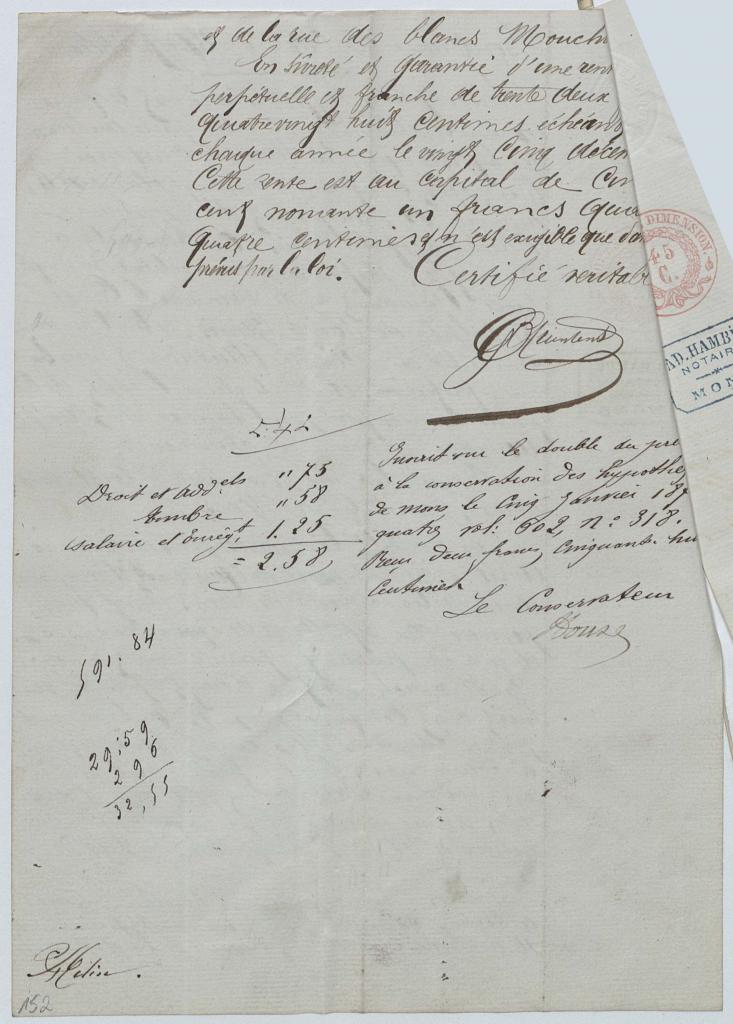 et de la rue des blancs Mouch
En sûreté et garantie d'une rent
perpétuelle et franche de trente deux
quatrevingt huit centimes échéant
chaque année le vingt Cinq décem
Cette rente est au capital de Cin
cent nonante un francs qua
quatre centimes et n'est exigible que dan
prévus par la loi.
Certifié véritab
DIMENSION.
45
C.
AD. HAMBI
NOTAIR
MON
542
Droit et add.els " 75
timbre " 58
Salaire et Enregt 1.25
= 2.58
Inscrit sur le double du pré
à la conservation des hypothè
de mons le Cinq Janvier 18
quatre vol: 602, n° 318.
Reçu deux francs, Cinquante hu
Centimes
Le Conservateur
591.84
29.59
2 96
32,55
152